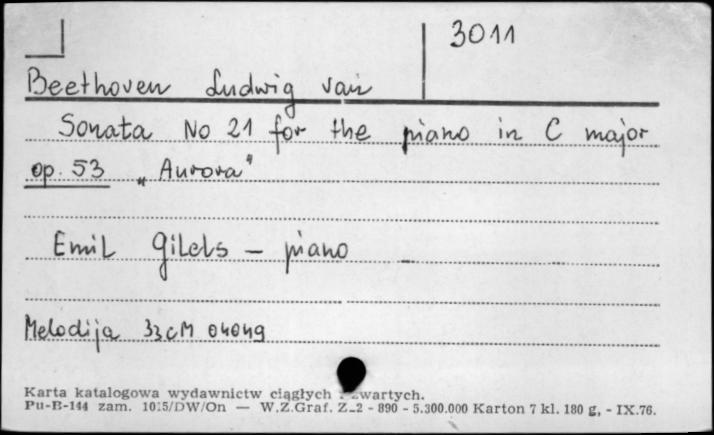 3011
Beethoven Ludwig van
Sonata No 21 for the piano in C major
op. 53 „Aurora"
Emil Gilels – piano
Melodija 33cM 04049
Karta katalogowa wydawnictw ciągłych i zwartych.
Pu-B-144 zam. 1015/DW/On — W.Z.Graf. Z-2 - 890 - 5.300.000 Karton 7 kl. 180 g, - IX.76.